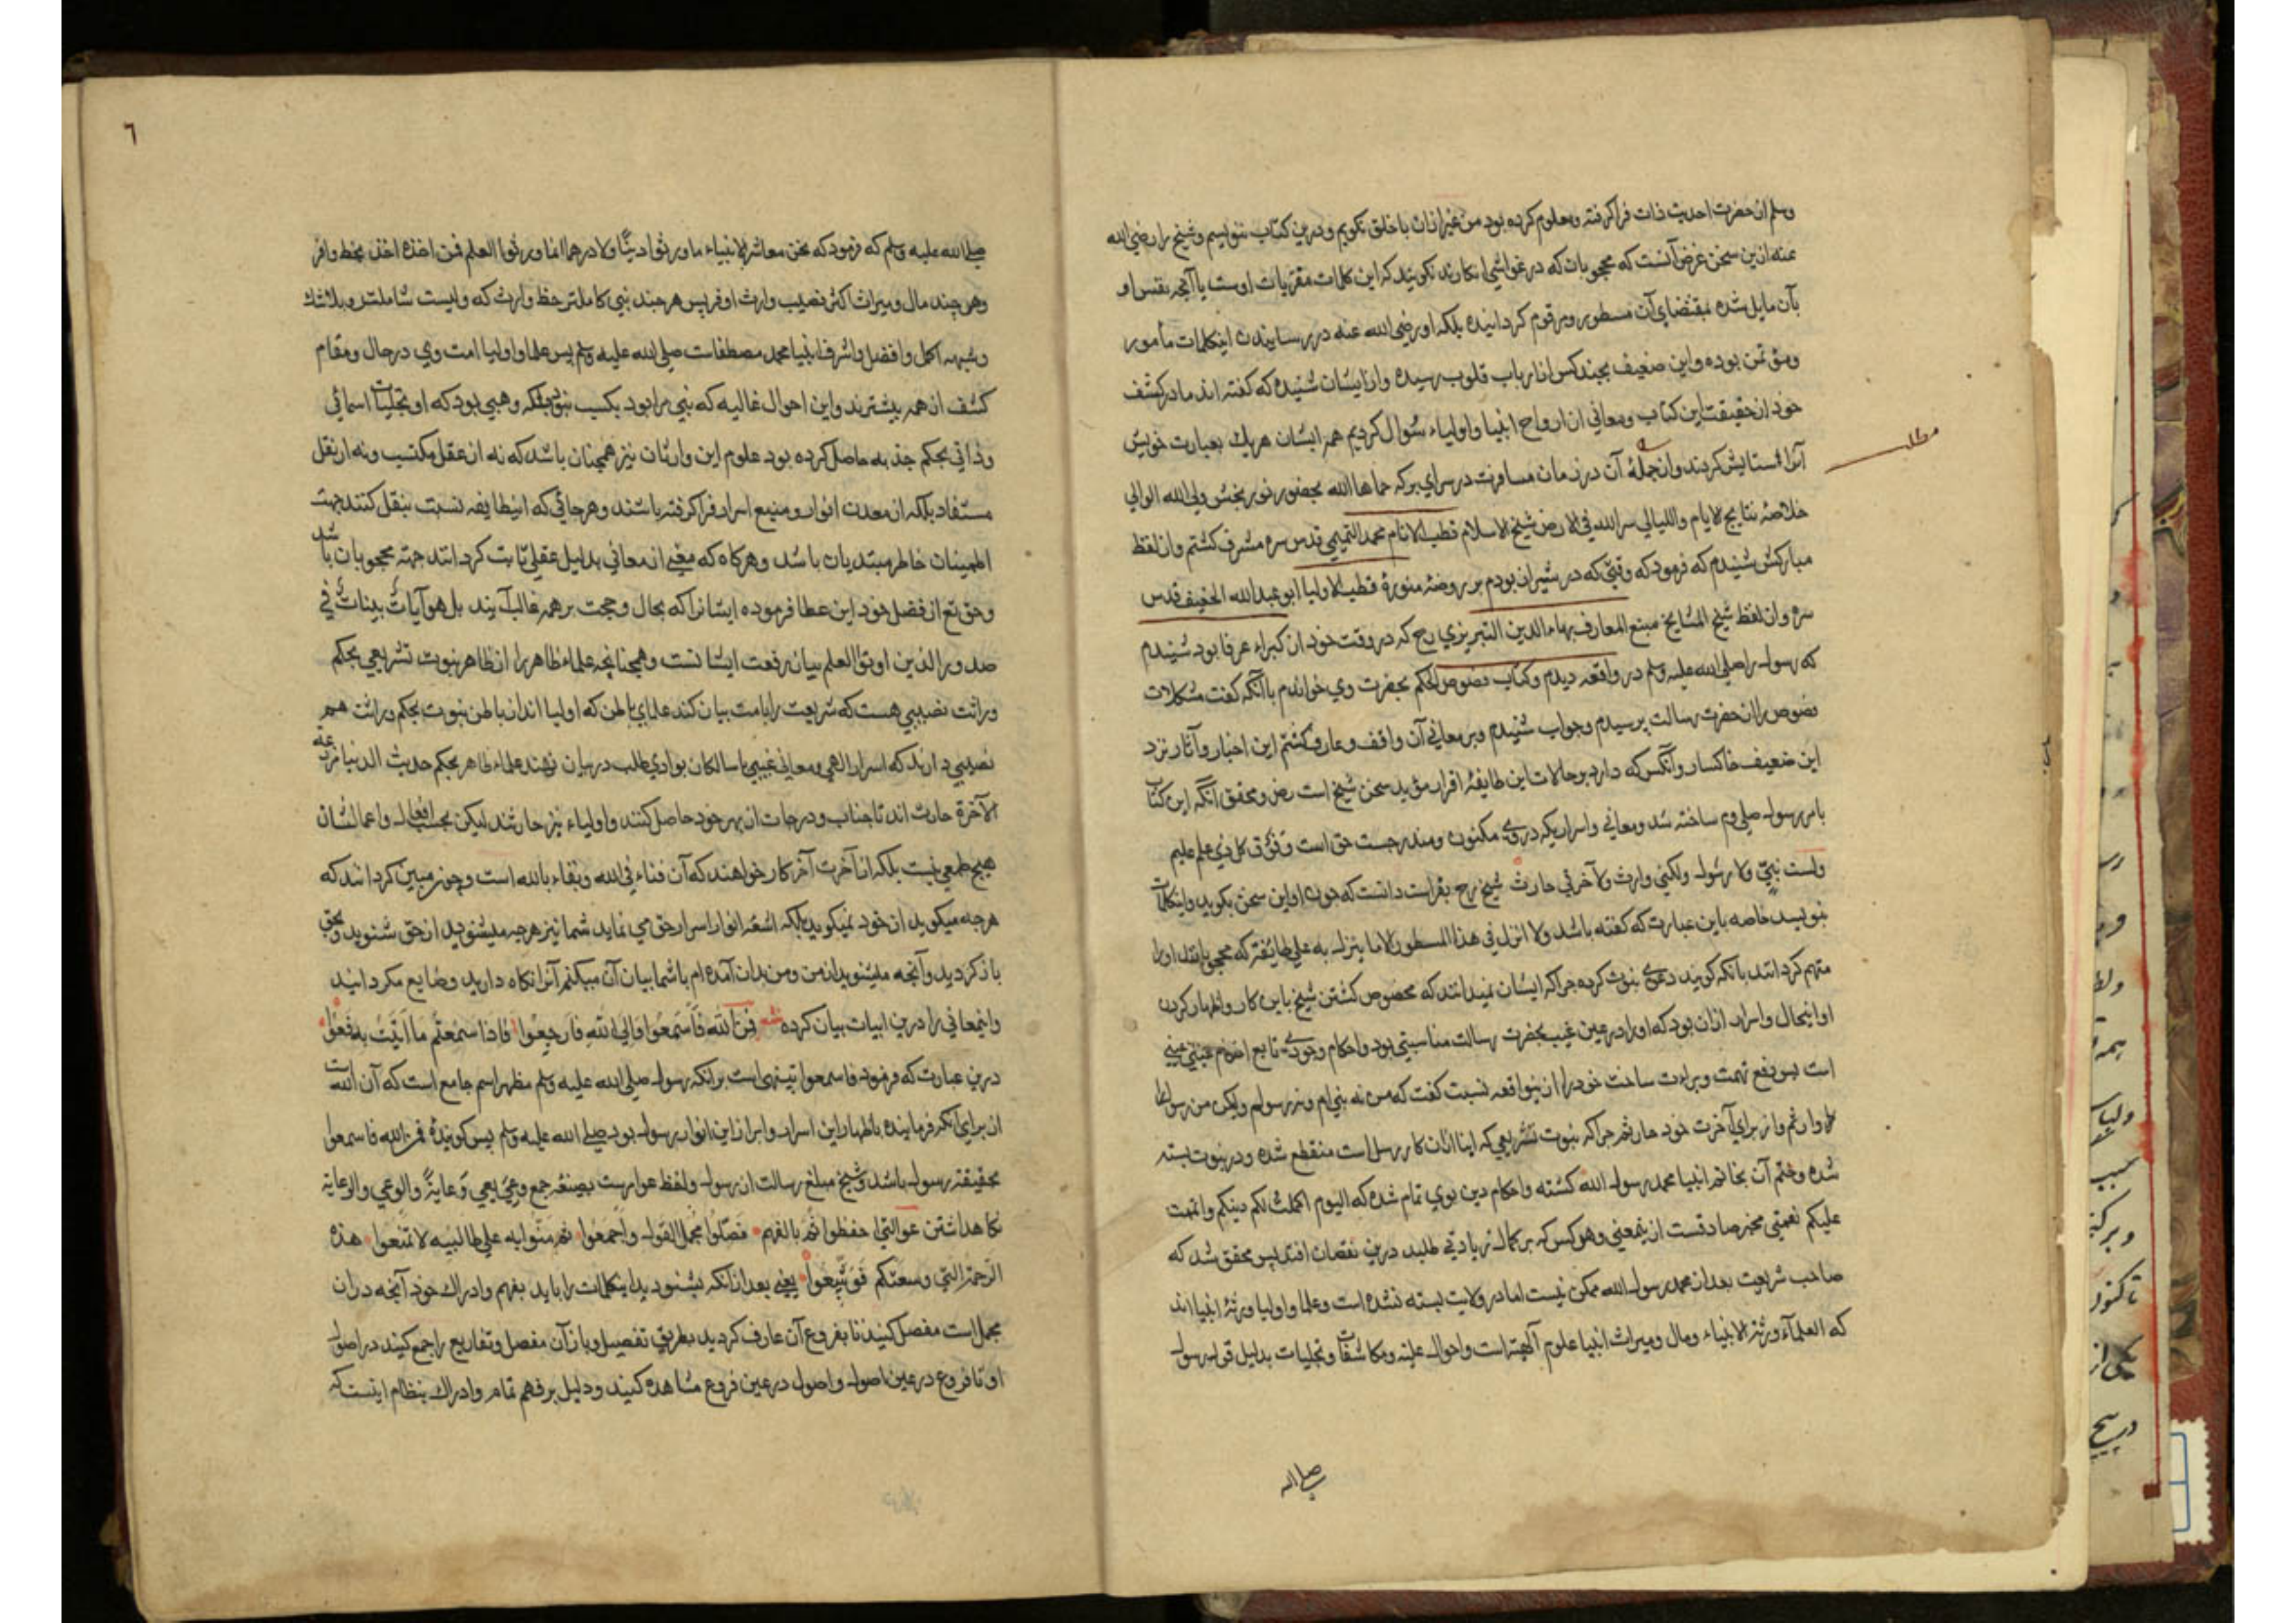 وسلم از حضرت احدیت ذات فرا کرفته و معلوم کرده بود من غیر ازان با خلق نکویم و درین کتاب ننویسم و شیخ را رضی الله
عنه ازین سخن غرض آنست که محجوبان که در غواشی انکارند نکویند که این کلمات مفتریات اوست یا آنچه نفس او
بآن مایل شده بمقتضای آن مسطور و مرقوم کردانیده بلکه او رضی الله عنه در رسانیدن اینکلمات مأمور
ومؤتمن بوده و این ضعیف بچند کس از ارباب قلوب رسیده و از ایشان شنیده که کفته اند ما در کشف
خود از حقیقت این کتاب و معانی از ارواح انبیا و اولیاء سؤال کردیم همه ایشان هریك بعبارت خویش
آنرا ستایش کردند و از جملهٔ آن در زمان مسافرت در سرای برکه حماها الله بحضور نور بخش ولی الله الوالی
مطلب
خلاصهٔ نتایج الایام واللیالی سر الله فی الارض شیخ الاسلام قطب الانام محمد التمیمی قدس سره مشرف کشتم و از لفظ
مبارکش شنیدم که فرمود که وقتی که در شیراز بودم بر روضهٔ منورهٔ قطب الاولیا ابو عبد الله الخفیف قدس
سره و از لفظ شیخ المشایخ منبع المعارف بهاء الدین التبریزی رح که در وقت خود از کبراء عرفا بود شنیدم
که رسول را صلی الله علیه وسلم در واقعه دیدم و کتاب فصوص الحکم بحضرت وی خواندم باآنکه کفت مشکلات
فصوص را از حضرت رسالت پرسیدم و جواب شنیدم و بر معانی آن واقف و عارف کشتم این اخبار و آثار نزد
این ضعیف خاکسار و آنکس که دارد بر حالات این طایفهٔ اقرار مؤید سخن شیخ است رض و محقق آنکه این کتاب
بامر رسول صلی وم ساخته شد و معانی و اسرار یکه دروی مکنون و مندرجست حق است وفوق کل ذی علم علیم
ولست بنبیّ ولا رسول ولکنی وارث ولآخرتی حارث شیخ رح بفراست دانست که چون او این سخن بکوید و اینکلمات
بنویسد خاصه باین عبارت که کفته باشد ولا انزل فی هذا المسطور الا ما ینزل به علی طایفه که محجوبانند او را
متهم کردانند بانکه کویند دعوی نبوت کرده چراکه ایشان نمیدانند که مخصوص کشتن شیخ باین کار و اظهار کردن
او اینحال و اسرار ازان بود که او را در عین غیب بحضرت رسالت مناسبتی بود و احکام وجودی تابع احکام غیبی عینی
است پس دفع تهمت و براءت ساحت خود را ازینواقعه نسبت کفت که من نه نبی ام و نه رسولم ولیکن من رسول را
وارثم و از برای آخرت خود حارثم چراکه نبوت تشریعی که ایتا ازان کار رسل است منقطع شده و در نبوت بسته
شده و ختم آن بخاتم انبیا محمد رسول الله کشته و احکام دین بوی تمام شده که الیوم اکملت لکم دینکم واتممت
علیکم نعمتی مخبر صادقست ازینمعنی و هر کس که بر کمال زیادتی طلبد درین نقصان افتد پس محقق شد که
صاحب شریعت بعد از محمد رسول الله ممکن نیست اما در ولایت بسته نشده است و علما و اولیا ورثهٔ انبیا اند
که العلمآء ورثة الانبیاء و مال و میراث انبیا علوم آلهیه است و احوال علیّه و مکاشفات و تجلیات بدلیل قول رسول
صلی الله
٦
صلی الله علیه وسلم که فرمود که نحن معاشر الانبیاء ما ورثوا دینًا ولا درهما انما ورثوا العلم فمن اخذه اخذ بحظ وافر
وهر چند مال و میراث اکثر نصیب وارث اوفر پس هر چند نبی کاملتر حظ وارث که ولیست شاملتر و بلا شك
وشبهه اکمل و افضل و اشرف انبیا محمد مصطفاست صلی الله علیه وسلم پس علما و اولیا امت وی در حال و مقام
کشف از همه بیشترند و این احوال غالیه که نبی را بود بکسب نبود بلکه وهبی بود که او تجلیات اسمائی
وذاتی بحکم جذبه حاصل کرده بود علوم این وارثان نیز همچنان باشد که نه از عقل مکتسب ونه از نقل
مستفاد بلکه از معدن انوار و منبع اسرار فرا کرفته باشند و هر جائی که اینطایفه نسبت بنقل کنند جهت
اطمینان خاطر مبتدیان باشد و هرکاه که معنی ازمعانی بدلیل عقلی ثابت کردانند جهته محجوبان باشد
وحق تع از فضل خود این عطا فرموده ایشانرا که بحال و حجت بر همه غالب آیند بل هو آیات بینات فی
صدور الذین اوتوا العلم بیان رفعت ایشانست و همچنانچه علماء ظاهر را از ظاهر نبوت تشریعی بحکم
وراثت نصیبی هست که شریعت را بامت بیان کنند علمای باطن که اولیا اند از باطن نبوت بحکم وراثت هم
نصیبی دارند که اسرار الهی و معانی غیبی با سالکان بوادی طلب در میان نهند علماء ظاهر بحکم حدیث الدنیا مزرعة
الآخرة حارث اند تا جنات و درجات از بهر خود حاصل کنند و اولیاء نیز حارثند لیکن بحسب افعال و اعمالشان
هیچ طمعی نیست بلکه از آخرت آخر کار خواهند که آن فناء فی الله و بقاء بالله است و چون مبین کردانند که
هرچه میکوید از خود نمیکوید بلکه اشعه انوار اسرار حق می نماید شما نیز هرچه میشنوید از حق شنوید و بحق
باز کردید و آنچه میشنوید از من و من بدان آمده ام با شما بیان آن میکنم آنرا نکاه دارید و ضایع مکردانید
و اینمعانی را درین ابیات بیان کرده شعر فمن الله فاسمعوا والی الله فارجعوا فاذا سمعتم ما اتیت به فعوا
درین عبارت که فرمود فاسمعوا تنبیه است برانکه رسول صلی الله علیه وسلم مظهر اسم جامع است که آن الله است
از برای انکه فرماینده باظهار این اسرار و ابراز این انوار رسول بود صلی الله علیه وسلم پس کویندهٔ فمن الله فاسمعوا
بحقیقته رسول باشد و شیخ مبلغ رسالت از رسول و لفظ عوا امرست بصیغهٔ جمع وعی یعی وعایةً والوعی والوعایة
نکاهداشتن عوالتی احفظوا ثم بالفهم فصّلوا مجمل القول واجمعوا ثم منّوا به علی طالبیه لا تمنعوا هذه
الرحمة التی وسعتکم فوسّعوا یعنی بعد ازانکه بشنودید اینکلمات را باید بفهم و ادراك خود آنچه دران
مجمل است مفصل کنید تا بفروع آن عارف کردید بطریق تفصیل و باز آن مفصل و تفاریع را جمع کنید در اصول
او تا فروع در عین اصول و اصول در عین فروع مشاهده کنید و دلیل بر فهم تمام و ادراك بنظام اینست که